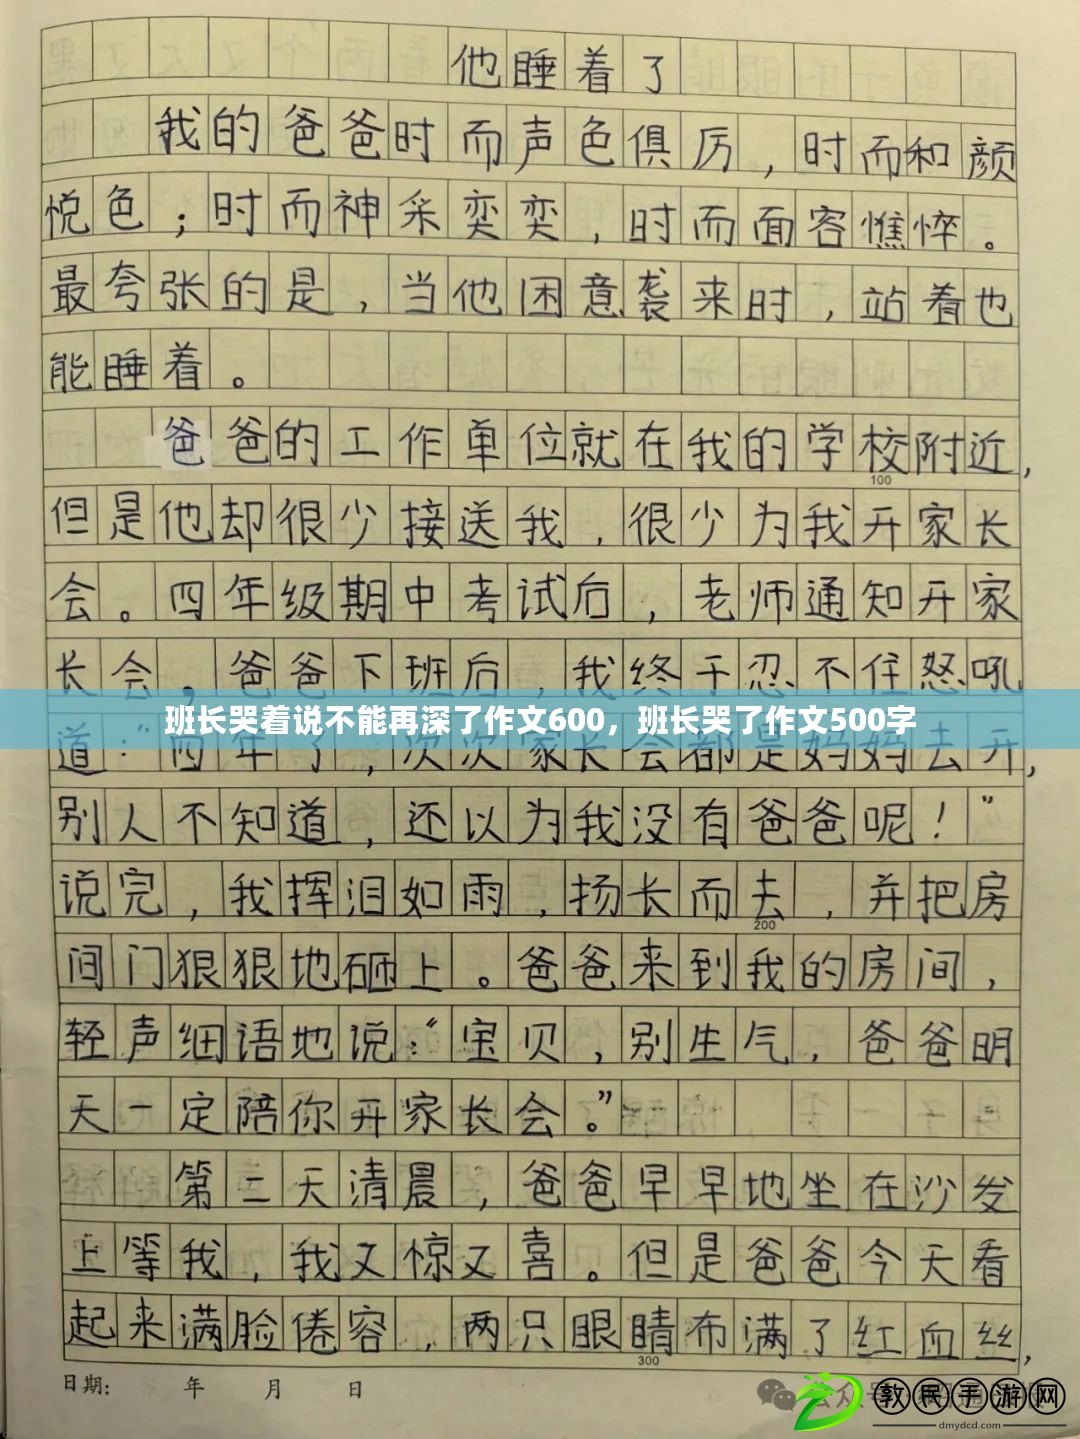 他睡着了
我的爸爸时而声色俱厉，时而和颜
悦色；时而神采奕奕，时而面容憔悴。
最夸张的是，当他困意袭来时，站着也
能睡着。
爸爸的工作单位就在我的学校附近，
100
但是他却很少接送我，很少为我开家长
会。四年级期中考试后，老师通知开家
长会，爸爸下班后，我终于忍不住怒吼
班长哭着说不能再深了作文600，班长哭了作文500字
道：“四年了，次次家长会都是妈妈去开，
别人不知道，还以为我没有爸爸呢！”
说完，我挥泪如雨，扬长而去，并把房
200
间门狠狠地砸上。爸爸来到我的房间，
轻声细语地说：“宝贝，别生气，爸爸明
天一定陪你开家长会。”
第二天清晨，爸爸早早地坐在沙发
上等我，我又惊又喜。但是爸爸今天看
起来满脸倦容，两只眼睛布满了红血丝，
300
日期： 年 月 日
公众号
敦民手游网
dmydcd.com